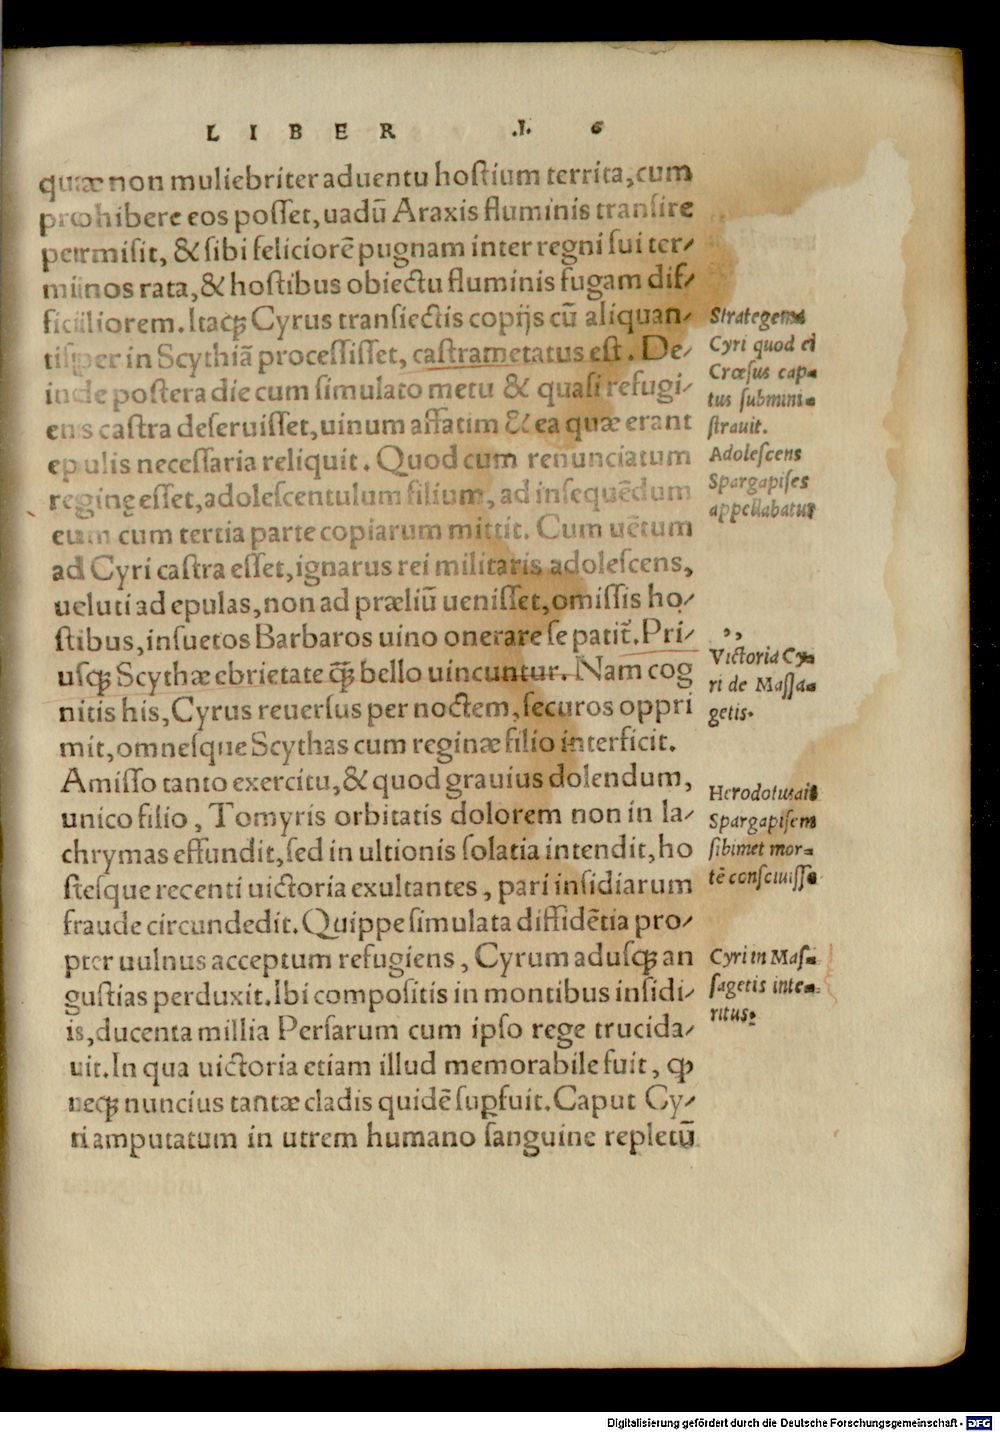 LIBER .I. 6
quæ non muliebriter aduentu hostium territa, cum
prohibere eos posset, uadū Araxis fluminis transire
permisit, & sibi feliciorē pugnam inter regni sui ter-
minos rata, & hostibus obiectu fluminis fugam dif-
ficiliorem. Itaqꝫ Cyrus transiectis copijs cū aliquan-
tisper in Scythiā processisset, castrametatus est. De-
inde postera die cum simulato metu & quasi refugi-
ens castra deseruisset, uinum affatim & ea quæ erant
epulis necessaria reliquit. Quod cum renunciatum
reginę esset, adolescentulum filium, ad insequēdum
eum cum tertia parte copiarum mittit. Cum uētum
ad Cyri castra esset, ignarus rei militaris adolescens,
ueluti ad epulas, non ad præliū uenisset, omissis ho-
stibus, insuetos Barbaros uino onerare se patit᷑. Pri-
usqꝫ Scythæ ebrietate q̄ꝫ bello uincuntur. Nam cog
nitis his, Cyrus reuersus per noctem, securos oppri
mit, omnesque Scythas cum reginæ filio interficit.
Amisso tanto exercitu, & quod grauius dolendum,
unico filio, Tomyris orbitatis dolorem non in la-
chrymas effundit, sed in ultionis solatia intendit, ho
stesque recenti uictoria exultantes, pari insidiarum
fraude circundedit. Quippe simulata diffidētia pro-
pter uulnus acceptum refugiens, Cyrum adusqꝫ an
gustias perduxit. Ibi compositis in montibus insidi-
is, ducenta millia Persarum cum ipso rege trucida-
uit. In qua uictoria etiam illud memorabile fuit, ꝙ
neqꝫ nuncius tantæ cladis quidē suꝑfuit. Caput Cy-
ri amputatum in utrem humano sanguine repletū
Strategema
Cyri quod ei
Crœsus cap-
tus submini-
strauit.
Adolescens
Spargapises
appellabatur
Victoria Cy-
ri de Massa-
getis.
Herodotus ait
Spargapisem
sibimet mor-
tē consciuisse.
Cyri in Mas-
sagetis inte-
ritus.
Digitalisierung gefördert durch die Deutsche Forschungsgemeinschaft - DFG